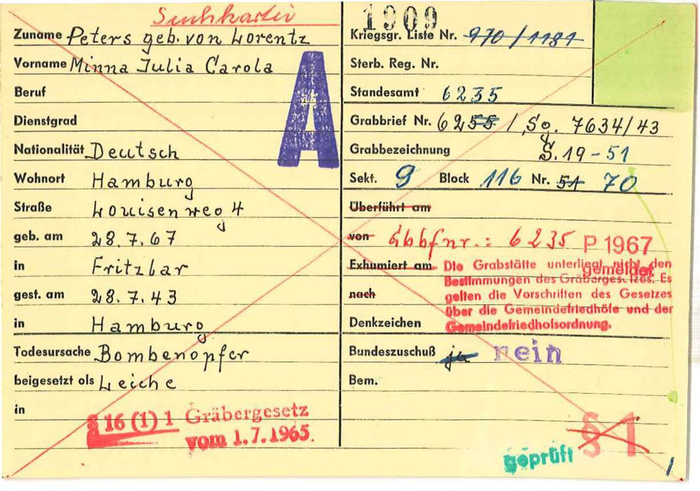 Suchkartei
1909
Zuname Peters geb. von Lorentz
Vorname Minna Julia Carola
Beruf
Dienstgrad
Nationalität Deutsch
Wohnort Hamburg
Straße Louisenweg 4
geb. am 28.7.67
in Fritzlar
gest. am 28.7.43
in Hamburg
Todesursache Bombenopfer
beigesetzt als Leiche
in
§ 16 (1) 1 Gräbergesetz
vom 1.7.1965.
A
Kriegsgr. Liste Nr. 970/1181
Sterb. Reg. Nr.
Standesamt 6235
Grabbrief Nr. 6255 / Sg. 7634/43
Grabbezeichnung S.19-51
Sekt. 9 Block 116 Nr. 51 70
Überführt am
von Gbbfnr.: 6235 P 1967
gemeldet
Exhumiert am Die Grabstätte unterliegt nicht den
Bestimmungen des Gräbergesetzes. Es
nach gelten die Vorschriften des Gesetzes
über die Gemeindefriedhöfe und der
Denkzeichen Gemeindefriedhofsordnung.
Bundeszuschuß ja nein
Bem.
§ 1
geprüft